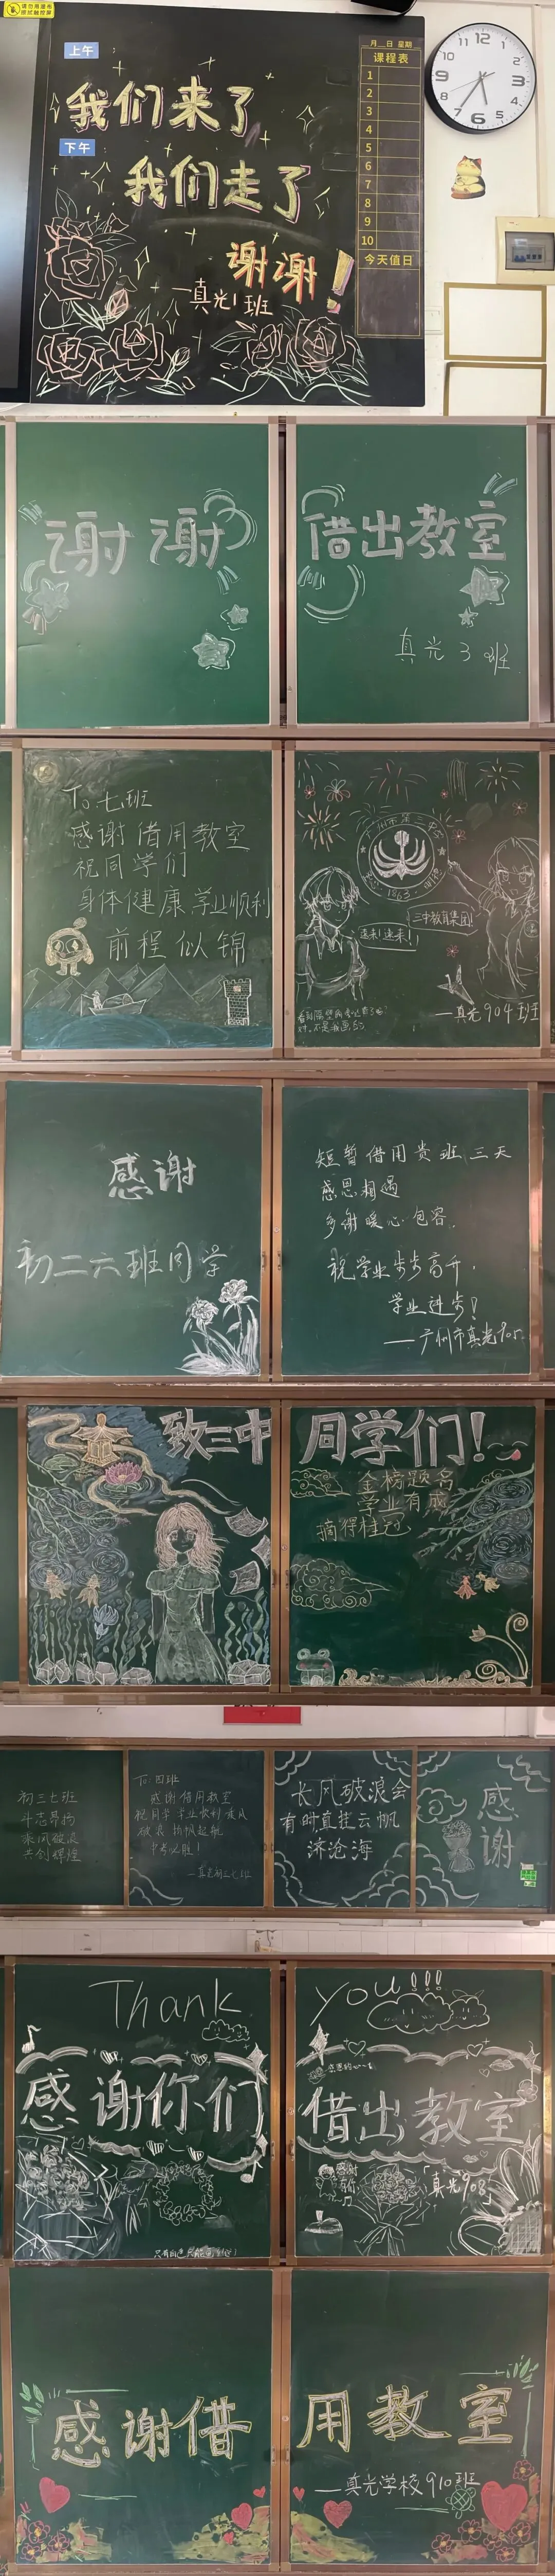 请勿用湿布
擦拭触控屏
上午
我们来了
下午
我们走了
谢谢!
一真光1班
月 日 星期
课程表
1
2
3
4
5
6
7
8
9
10
今天值日
12
11
1
10
2
9
3
8
4
7
5
6
谢谢
借出教室
真光3班
To 七班
感谢借用教室
祝同学们
身体健康 学业顺利
前程似锦
广州市第三中学
1863
速来!速来!!
三中教育集团!
—真光904班
感谢
初二六班同学
短暂借用贵班三天
感恩相遇
多谢暖心包容.
祝学业步步高升.
学业进步!
——广州市真光905.
致三中
同学们!
金榜题名
学业有成
摘得桂冠
初三七班
斗志昂扬
乘风破浪
共创辉煌
To:四班
感谢借用教室
祝同学学业顺利 乘风
破浪 扬帆起航
中考必胜!
—真光初三七班
长风破浪会
有时直挂云帆
济沧海
感
谢
Thank
you!!!
感谢你们
借出教室
感谢
「真光908」
感谢借
用教室
—真光学校910班